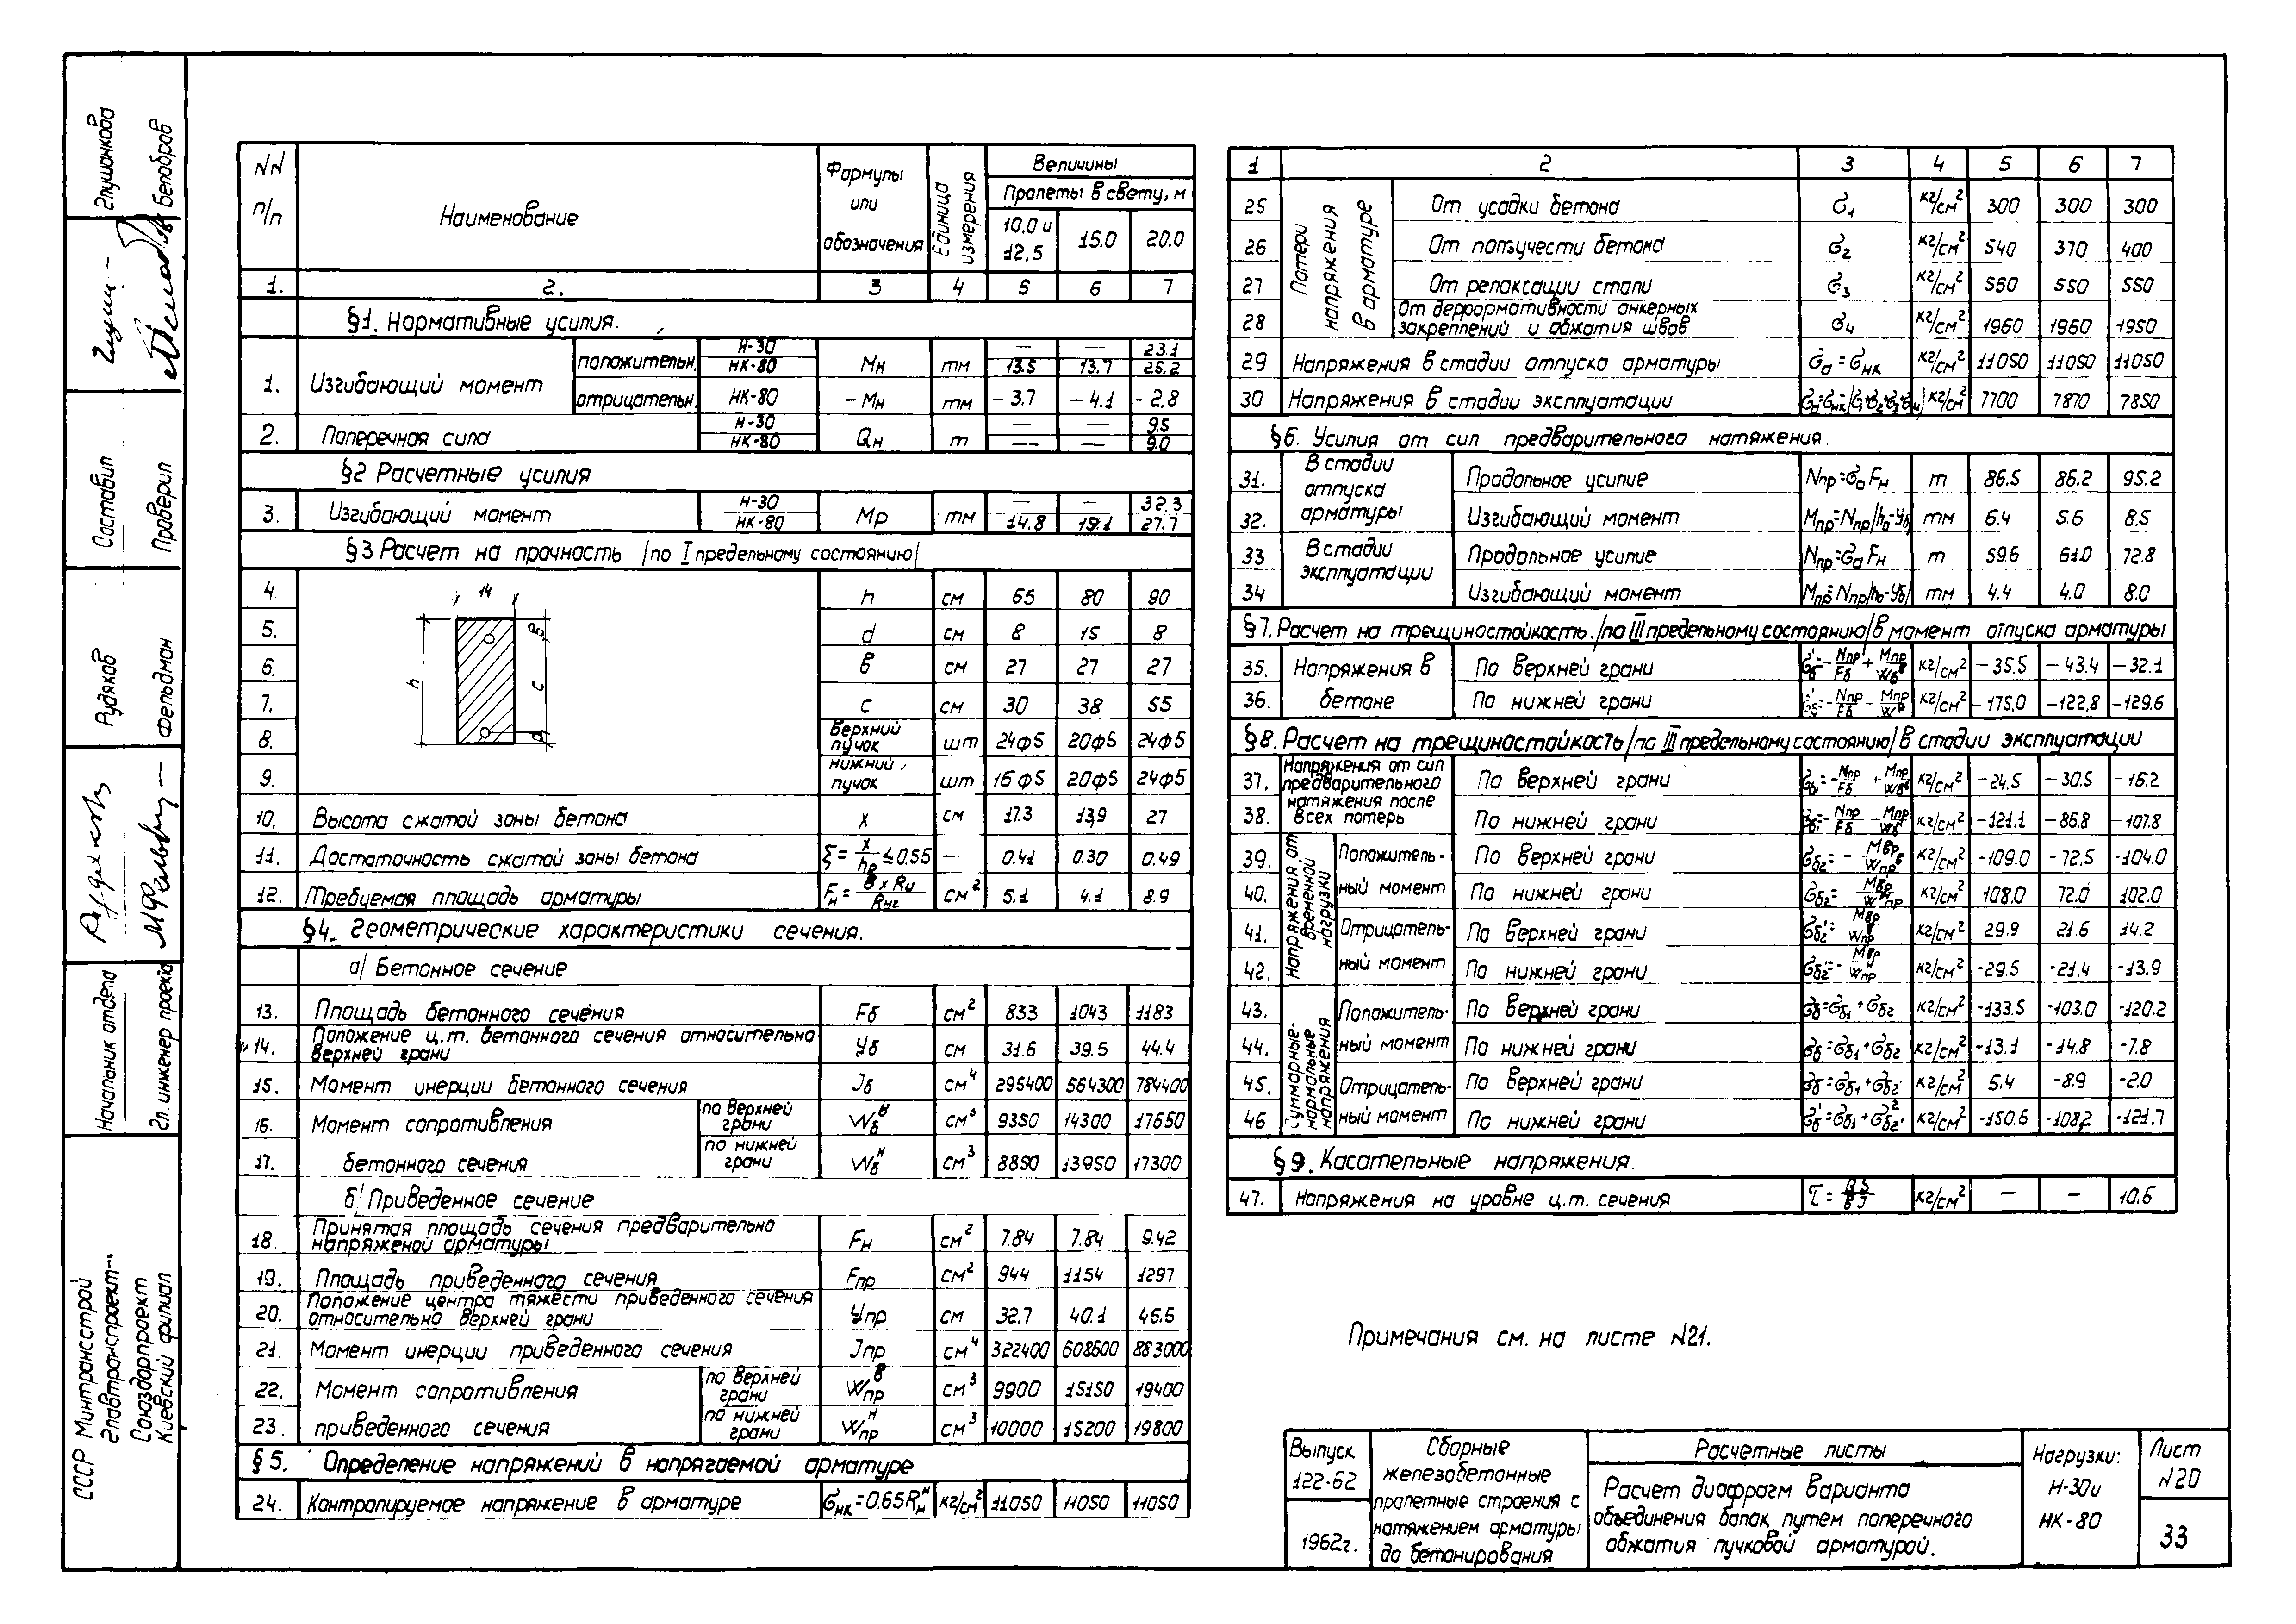 NN п/п | Наименование | Формулы или обозначения | Единица измерения | Величины
Пролеты в свету, м
10.0 и 12.5 | 15.0 | 20.0
1. | 2. | 3 | 4 | 5 | 6 | 7
§1. Нормативные усилия.
1. | Изгибающий момент | положительн. | Н-30 | Mн | тм | — | — | 23.1
НК-80 | 13.5 | 13.7 | 25.2
отрицательн. | НК-80 | – Mн | тм | – 3.7 | – 4.1 | – 2.8
2. | Поперечная сила | Н-30 | Qн | т | — | — | 9.5
НК-80 | — | — | 9.0
§2 Расчетные усилия
3. | Изгибающий момент | Н-30 | Mр | тм | — | — | 32.3
НК-80 | 14.8 | 15.1 | 27.7
§3 Расчет на прочность /по I предельному состоянию/
14
h
c
4. | h | см | 65 | 80 | 90
5. | d | см | 8 | 15 | 8
6. | в | см | 27 | 27 | 27
7. | c | см | 30 | 38 | 55
8. | верхний пучок | шт | 24ф5 | 20ф5 | 24ф5
9. | нижний пучок | шт. | 16ф5 | 20ф5 | 24ф5
10. | Высота сжатой зоны бетона | x | см | 17.3 | 13,9 | 27
11. | Достаточность сжатой зоны бетона | ξ = x/hр ≤ 0.55 | — | 0.41 | 0.30 | 0.49
12. | Требуемая площадь арматуры | Fн = в x Rи / Rн2 | см² | 5.1 | 4.1 | 8.9
§4. Геометрические характеристики сечения.
а/ Бетонное сечение
13. | Площадь бетонного сечения | Fб | см² | 833 | 1043 | 1183
14. | Положение ц.т. бетонного сечения относительно верхней грани | Уб | см | 31.6 | 39.5 | 44.4
15. | Момент инерции бетонного сечения | Jб | см⁴ | 295400 | 564300 | 784400
16. | Момент сопротивления | по верхней грани | Wбᵛ | см³ | 9350 | 14300 | 17650
17. | бетонного сечения | по нижней грани | Wбᴴ | см³ | 8850 | 13950 | 17300
б/ Приведенное сечение
18. | Принятая площадь сечения предварительно напряженой арматуры | Fн | см² | 7.84 | 7.84 | 9.42
19. | Площадь приведенного сечения | Fпр | см² | 944 | 1154 | 1297
20. | Положение центра тяжести приведенного сечения относительно верхней грани | Упр | см | 32.7 | 40.1 | 45.5
21. | Момент инерции приведенного сечения | Jпр | см⁴ | 322400 | 608600 | 883000
22. | Момент сопротивления | по верхней грани | Wпрᵛ | см³ | 9900 | 15150 | 19400
23. | приведенного сечения | по нижней грани | Wпрᴴ | см³ | 10000 | 15200 | 19800
§5. Определение напряжений в напрягаемой арматуре
24. | Контролируемое напряжение в арматуре | σнк = 0.65Rнᴴ | кг/см² | 11050 | 11050 | 11050
1 | 2 | 3 | 4 | 5 | 6 | 7
Потери напряжения в арматуре
25 | От усадки бетона | σ1 | кг/см² | 300 | 300 | 300
26 | От ползучести бетона | σ2 | кг/см² | 540 | 370 | 400
27 | От релаксации стали | σ3 | кг/см² | 550 | 550 | 550
28 | От деформативности анкерных закреплений и обжатия швов | σ4 | кг/см² | 1960 | 1960 | 1950
29 | Напряжения в стадии отпуска арматуры | σа = σнк | кг/см² | 11050 | 11050 | 11050
30 | Напряжения в стадии эксплуатации | σа=σнк-/σ1+σ2+σ3+σ4/ | кг/см² | 7700 | 7870 | 7850
§6. Усилия от сил предварительного натяжения.
31. | В стадии отпуска арматуры | Продольное усилие | Nпр=σа Fн | т | 86.5 | 86.2 | 95.2
32. | Изгибающий момент | Mпр=Nпр/hо-Уб/ | тм | 6.4 | 5.6 | 8.5
33 | В стадии эксплуатации | Продольное усилие | Nпр=σа Fн | т | 59.6 | 61.0 | 72.8
34 | Изгибающий момент | Mпр=Nпр/hо-Уб/ | тм | 4.4 | 4.0 | 8.0
§7. Расчет на трещиностойкость./по III предельному состоянию/ в момент отпуска арматуры
35. | Напряжения в | По верхней грани | σб'=-Nпр/Fб + Mпр/Wбᵛ | кг/см² | – 35.5 | – 43.4 | – 32.1
36. | бетоне | По нижней грани | σб'=-Nпр/Fб - Mпр/Wᴴ | кг/см² | – 175.0 | –122,8 | –129.6
§8. Расчет на трещиностойкость /по III предельному состоянию/ в стадии эксплуатации
37. | Напряжения от сил предварительного | По верхней грани | σб1=-Nпр/Fб + Mпр/Wбᵛ | кг/см² | –24,5 | – 30.5 | – 16.2
38. | натяжения после всех потерь | По нижней грани | σб1=-Nпр/Fб - Mпр/Wбᴴ | кг/см² | –121.1 | – 86.8 | – 107.8
Напряжения от временной нагрузки
39. | Положитель- | По верхней грани | σб2= - Mвр/Wпрᵛ | кг/см² | -109.0 | - 72,5 | -104.0
40. | ный момент | По нижней грани | σб2= Mвр/Wᴴпр | кг/см² | 108.0 | 72.0 | 102.0
41. | Отрицатель- | По верхней грани | σб2'= Mвр/Wпр | кг/см² | 29.9 | 21.6 | 14.2
42. | ный момент | По нижней грани | σб2'= - Mвр/Wпрᴴ | кг/см² | -29.5 | -21.4 | -13.9
Суммарные нормальные напряжения
43. | Положитель- | По верхней грани | σб=σб1+σб2 | кг/см² | -133.5 | -103.0 | -120.2
44. | ный момент | По нижней грани | σб=σб1+σб2 | кг/см² | -13.1 | -14.8 | -7.8
45. | Отрицатель- | По верхней грани | σб=σб1+σб2' | кг/см² | 5.4 | -8.9 | -2.0
46 | ный момент | По нижней грани | σб'=σб1+σб2' | кг/см² | -150.6 | -108,2 | -121.7
§9. Касательные напряжения.
47. | Напряжения на уровне ц.т. сечения | τ = QS/вJ | кг/см² | — | – | 10.6
Примечания см. на листе N21.
Выпуск 122-62
1962г.
Сборные железобетонные пролетные строения с натяжением арматуры до бетонирования
Расчетные листы
Расчет диафрагм варианта объединения балок путем поперечного обжатия пучковой арматурой.
Нагрузки: Н-30 и НК-80
Лист N20
33
Глушанкова
Белобров
Составил
Проверил
Рудяков
Фельдман
Начальник отдела
Гл. инженер проекта
СССР Минтрансстрой
Главтранспроект-
Союздорпроект
Киевский филиал